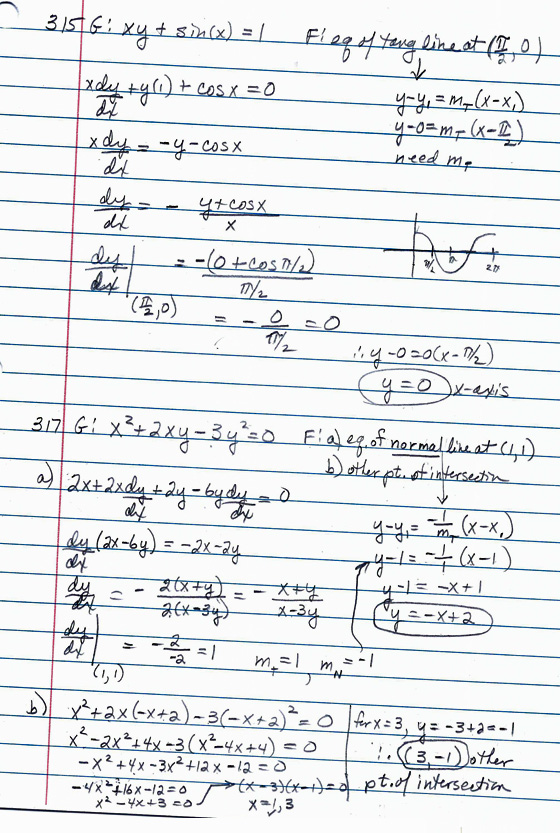 315 G: xy + sin(x) = 1 F: eq of tang line at (π/2, 0)
x dy/dx + y(1) + cosx = 0
y-y₁ = m_T(x-x₁)
y-0 = m_T(x-π/2)
need m_T
x dy/dx = -y - cosx
dy/dx = - (y+cosx)/x
π/2 π 2π
dy/dx |(π/2, 0) = -(0+cos π/2)/(π/2)
= - 0/(π/2) = 0
∴ y-0 = 0(x-π/2)
y = 0 x-axis
317 G: x²+2xy-3y²=0 F: a) eq. of normal line at (1,1)
b) other pt. of intersection
a) 2x+2x dy/dx + 2y - 6y dy/dx = 0
dy/dx (2x-6y) = -2x-2y
dy/dx = - 2(x+y)/2(x-3y) = - (x+y)/(x-3y)
dy/dx |(1,1) = - 2/-2 = 1 m_T = 1, m_N = -1
y-y₁ = -1/m_T (x-x₁)
y-1 = -1/1 (x-1)
y-1 = -x+1
y = -x+2
b) x²+2x(-x+2)-3(-x+2)² = 0
x²-2x²+4x-3(x²-4x+4) = 0
-x²+4x-3x²+12x-12 = 0
-4x²+16x-12=0
x²-4x+3=0
(x-3)(x-1)=0
x=1,3
for x=3, y=-3+2=-1
∴ (3,-1) other
pt. of intersection